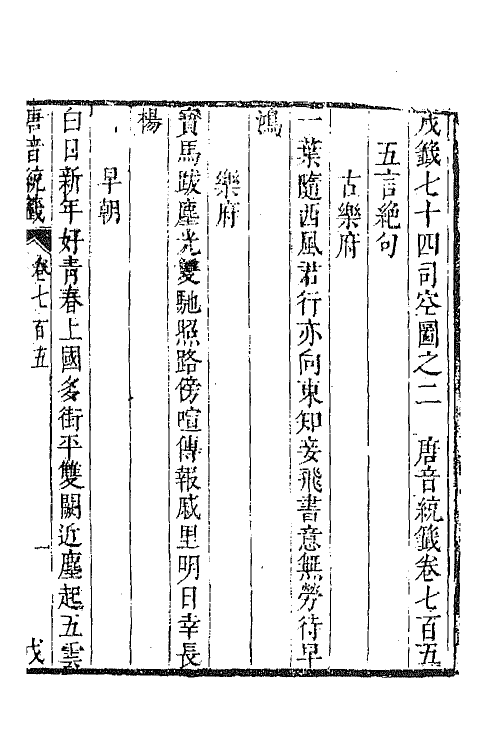 戊籖七十四司空圖之二　唐音統籖卷七百五
五言絕句
古樂府
一葉隨西風君行亦向東知妾飛書意無勞待早
鴻
樂府
寶馬跋塵光雙馳照路傍喧傳報戚里明日幸長
楊
早朝
白日新年好青春上國多街平雙闕近塵起五雲
唐音統籖　卷七百五　一　戊